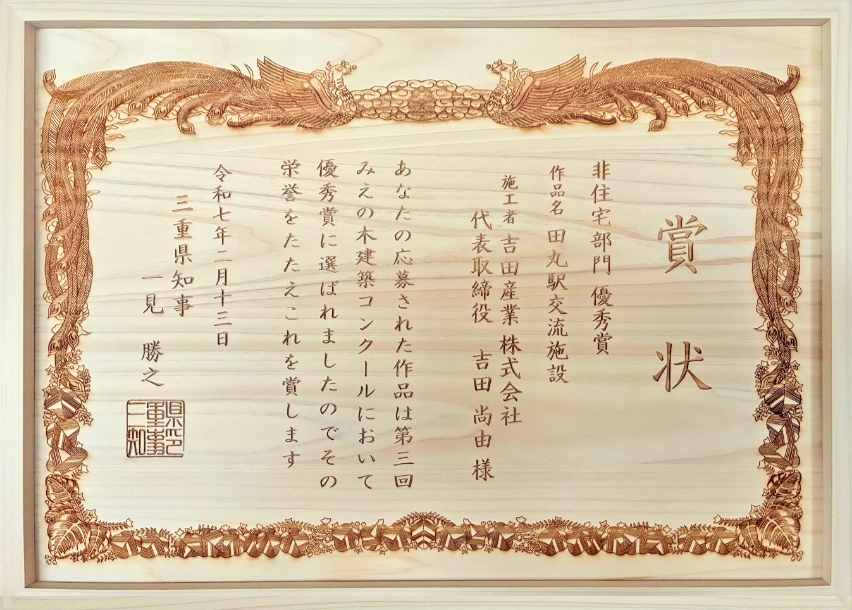 賞状
非住宅部門 優秀賞
作品名 田丸駅交流施設
施工者 吉田産業 株式会社
代表取締役 吉田 尚由 様
あなたの応募された作品は第三回
みえの木建築コンクールにおいて
優秀賞に選ばれましたのでその
栄誉をたたえこれを賞します
令和七年二月十三日
三重県知事
一見 勝之